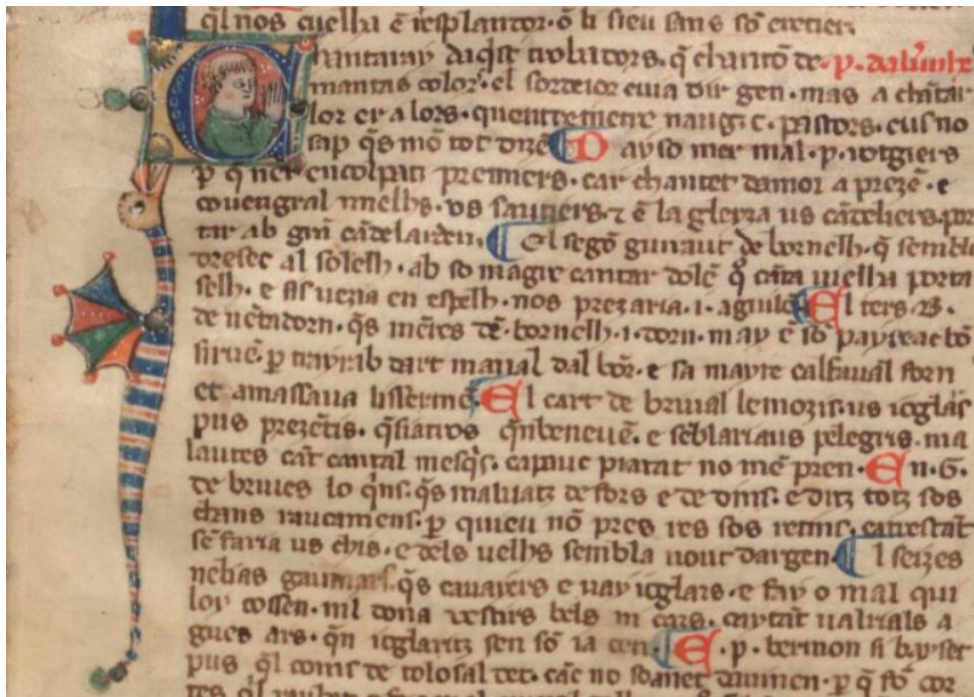 q̃l nos cuelha ẽ resplandor. õ li sieu sans sõ
hantaray daq̃st trobadors. q̃ chantõ de. p. daluernhe
mantas colors. el sordeior cuia dir gen. mas a chãtar
lor er a lors. quentremetre naug. c. pastors. cus no
sap q̃s mõ tot dizẽ D ayso mer mal. p. rotgiers
p q̃ ner encolpatz premiers. car chantet damor a prezẽ. e
couengral mielhs. us sautiers. z ẽ la glieyza us cãdeliers. por
tar ab grã cãdelarden. E l segõ guiraut de bornelh. q̃ sembl
oresec al solelh. ab so magre cantar dolẽ q̃ cãta uielha porta
selh. e sis uezia en espelh. nos prezaria. i. aguilẽ E l ters. B.
de uẽtadorn. q̃s mẽres dẽ. bornelh. i. dorn. may ẽ sõ payreac bõ
siruẽ. p trayrab dart manal dalbor. e sa mayre calfaual forn
et amassaua lissermẽ. E l cart de briual lemozis. us ioglars
pus prezẽtis. q̃sia tros q̃nbeneuẽ. e sẽblariaus pelegris. ma
lautes cãt cantal mesq̃s. capauc piatat no mẽ pren. E n. G.
de briues lo q̃ns. q̃s maluatz de fors e de dins. e ditz totz sos
chans raucamens. p quieu nõ pres res sos retins. catrestãt
sẽ faria us chis. e dels uelhs sembla uout dargen E l seizes
nebias gaumars. q̃s cauayers e uay ioglars. e fay o mal qui
loy cossen. nil dona uestirs bels ni cars. caytãt ualrials a
gues ars. q̃n ioglaritz sen sõ ia cen. E . p. bermon si baysset
pus q̃l coms de tolosal det. cãc no soanet diuinen. p q̃ fõ cor